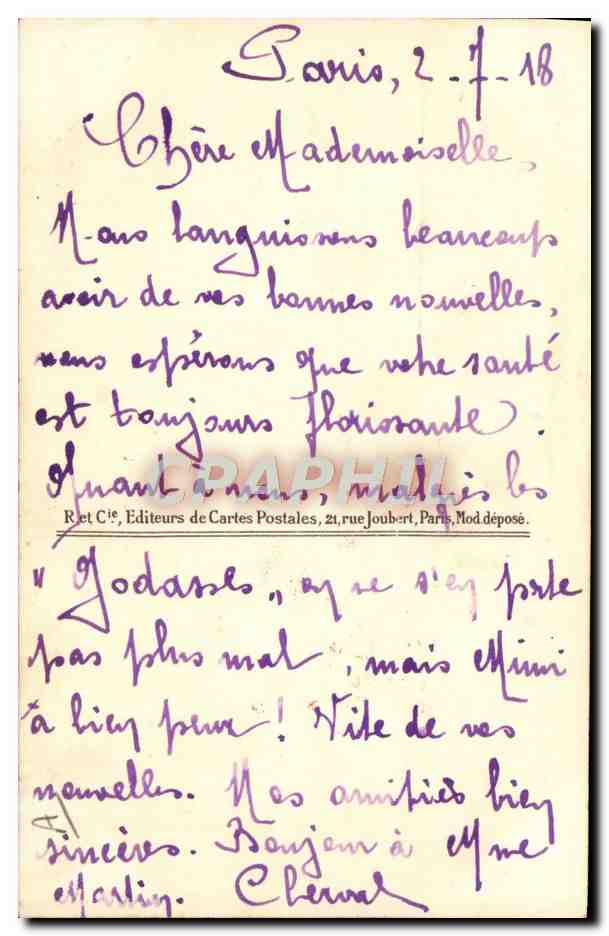 Paris, 2-7-18
Chère Mademoiselle,
Nous languissons beaucoup
avoir de vos bonnes nouvelles,
nous espérons que votre santé
est toujours florissante.
CPAPHIL
Quant à nous, malgrés les
R. et Cie, Editeurs de Cartes Postales, 21, rue Joubert, Paris, Mod. déposé.
"Godasses" on ne s'en porte
pas plus mal, mais Mimi
à bien peur! Vite de vos
nouvelles. Mes amitiés bien
sincères. Bonjour à Mme
Martin. Cherval